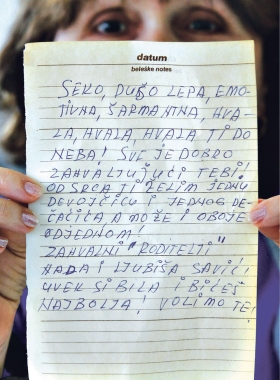 datum
beleške notes
SEKO, DUŠO LEPA, EMO-
TIVNA, ŠARMANTNA, HVA-
LA, HVALA, HVALA TI DO
NEBA! SVE JE DOBRO
ZAHVALJUJUĆI TEBI!
OD SRCA TI ŽELIM JEDNU
DEVOJČICU I JEDNOG DE-
ČAČIĆA A MOŽE I OBOJE
ODJEDNOM!
ZAHVALNI "RODITELJI"
NADA I LJUBIŠA SAVIĆ!
UVEK SI BILA I BIĆEŠ
NAJBOLJA! VOLIMO TE!